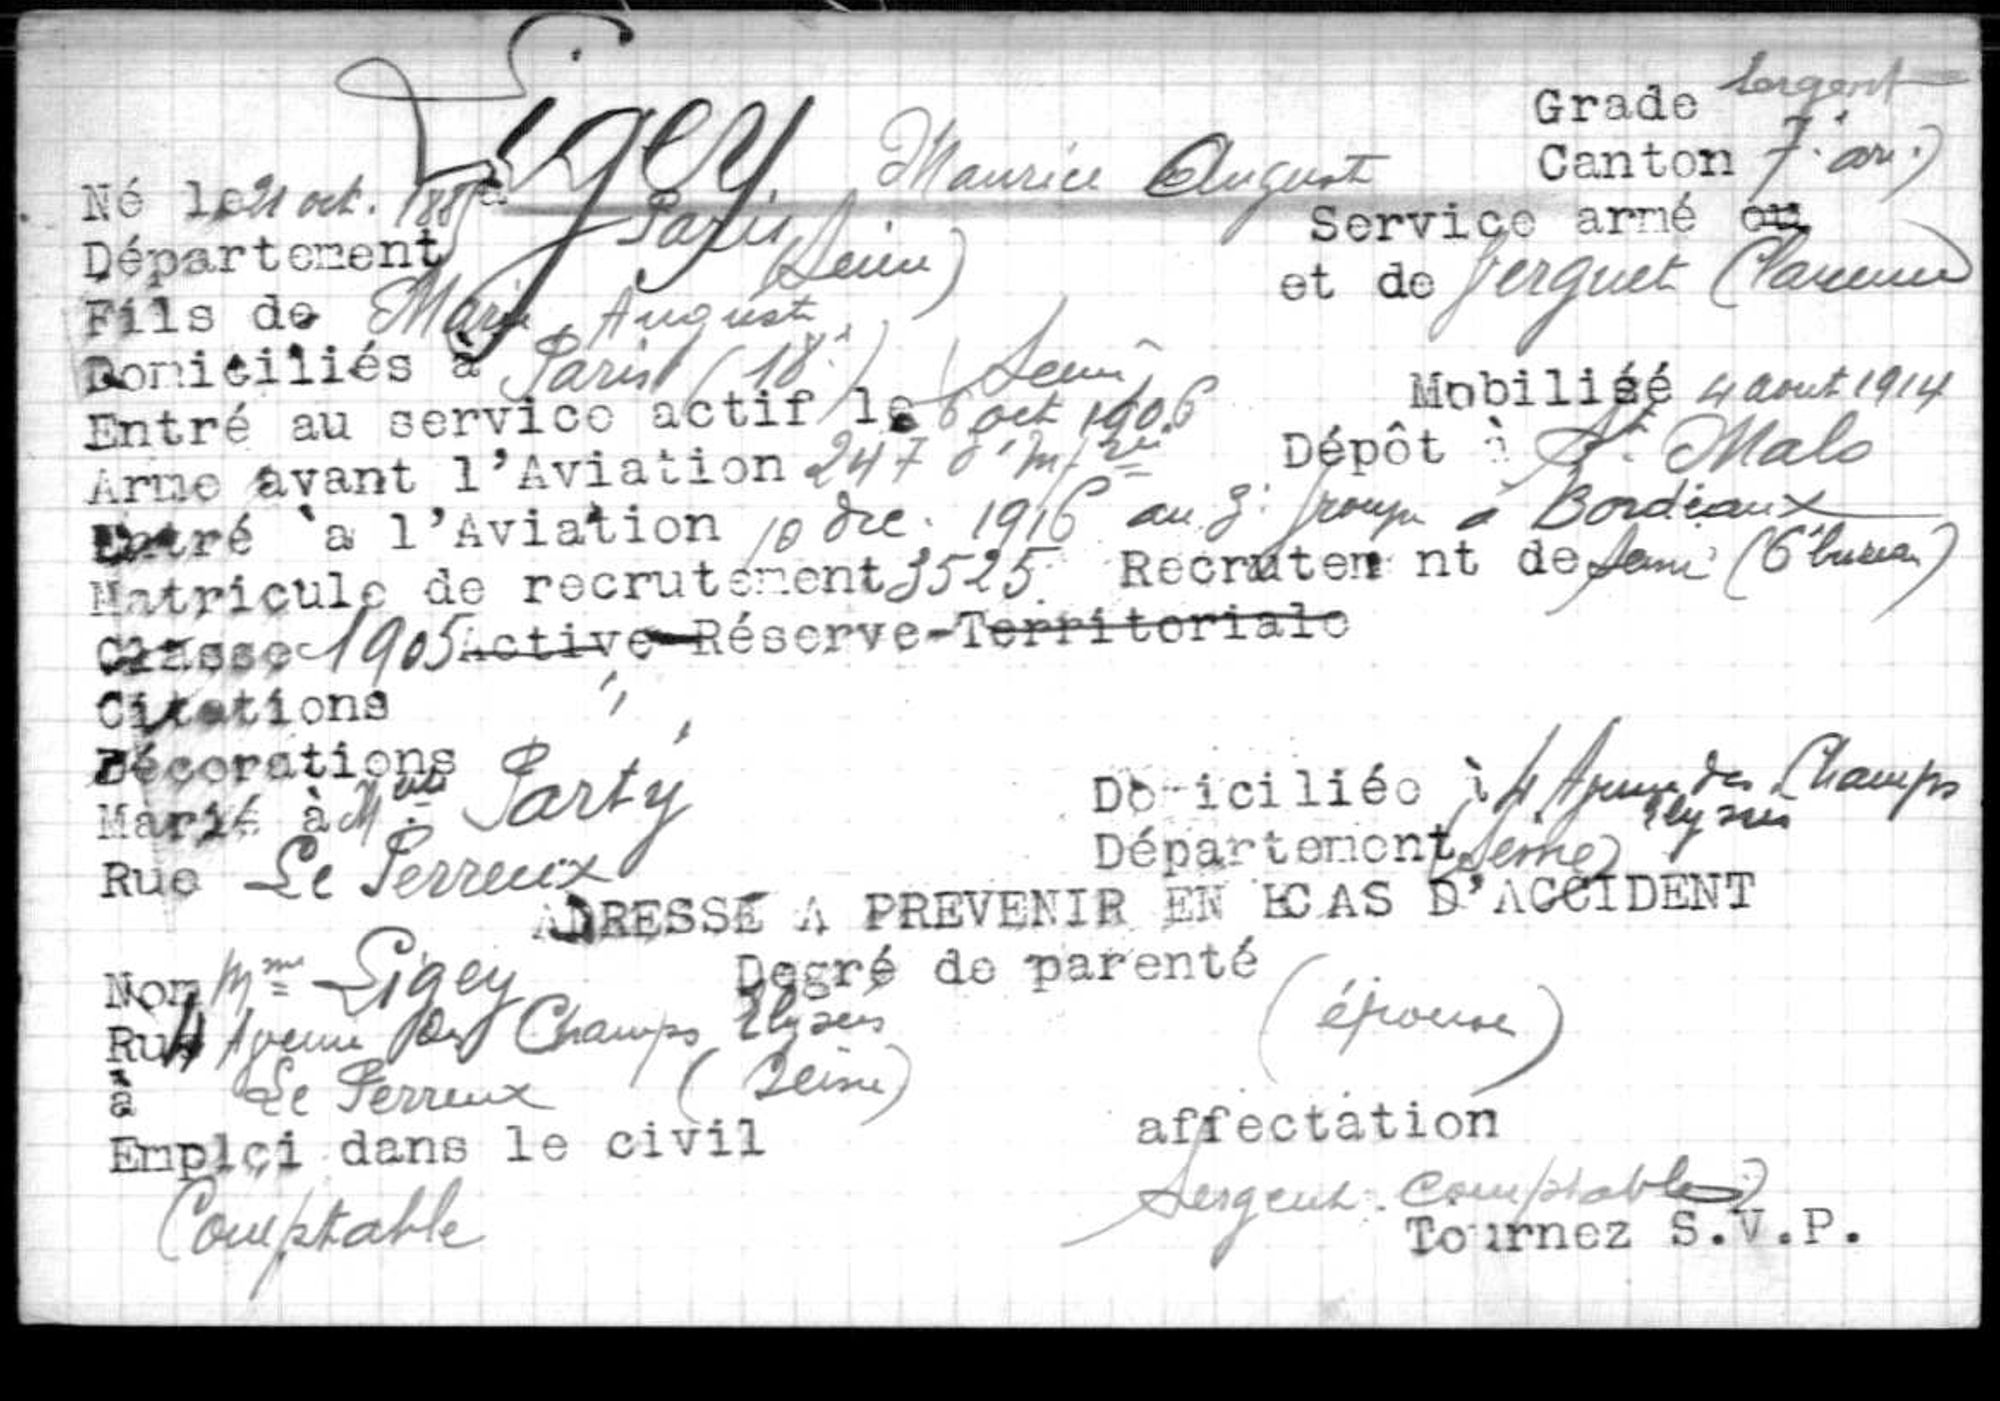 Ligey Maurice August
Grade Sergent
Canton 7e arr.)
Né le 21 oct. 1885 à Paris
Service armé ou
Département (Seine)
Fils de Marie August et de Verguet Clarence
Domiciliés à Paris (18e) (Seine
Entré au service actif le 6 oct 1906 Mobilisé 4 aout 1914
Arme avant l'Aviation 247 d'Inf rie Dépôt à St. Malo
Entré à l'Aviation 10 dec. 1916 au 3e groupe à Bordeaux
Matricule de recrutement 3525 Recrutement de Seine (6e bureau)
Classe 1905 Active-Réserve-Territoriale
Citations "
Décorations
Marié à Mlle Party Domiciliée à 4 Avenue des Champs Elysées
Rue Le Perreux Département (Seine)
ADRESSE A PREVENIR EN CAS D'ACCIDENT
Nom Mme Ligey Degré de parenté (épouse)
Rue 4 Avenue des Champs Elysées
à Le Perreux (Seine)
Emploi dans le civil affectation
Comptable Sergent Comptable
Tournez S.V.P.